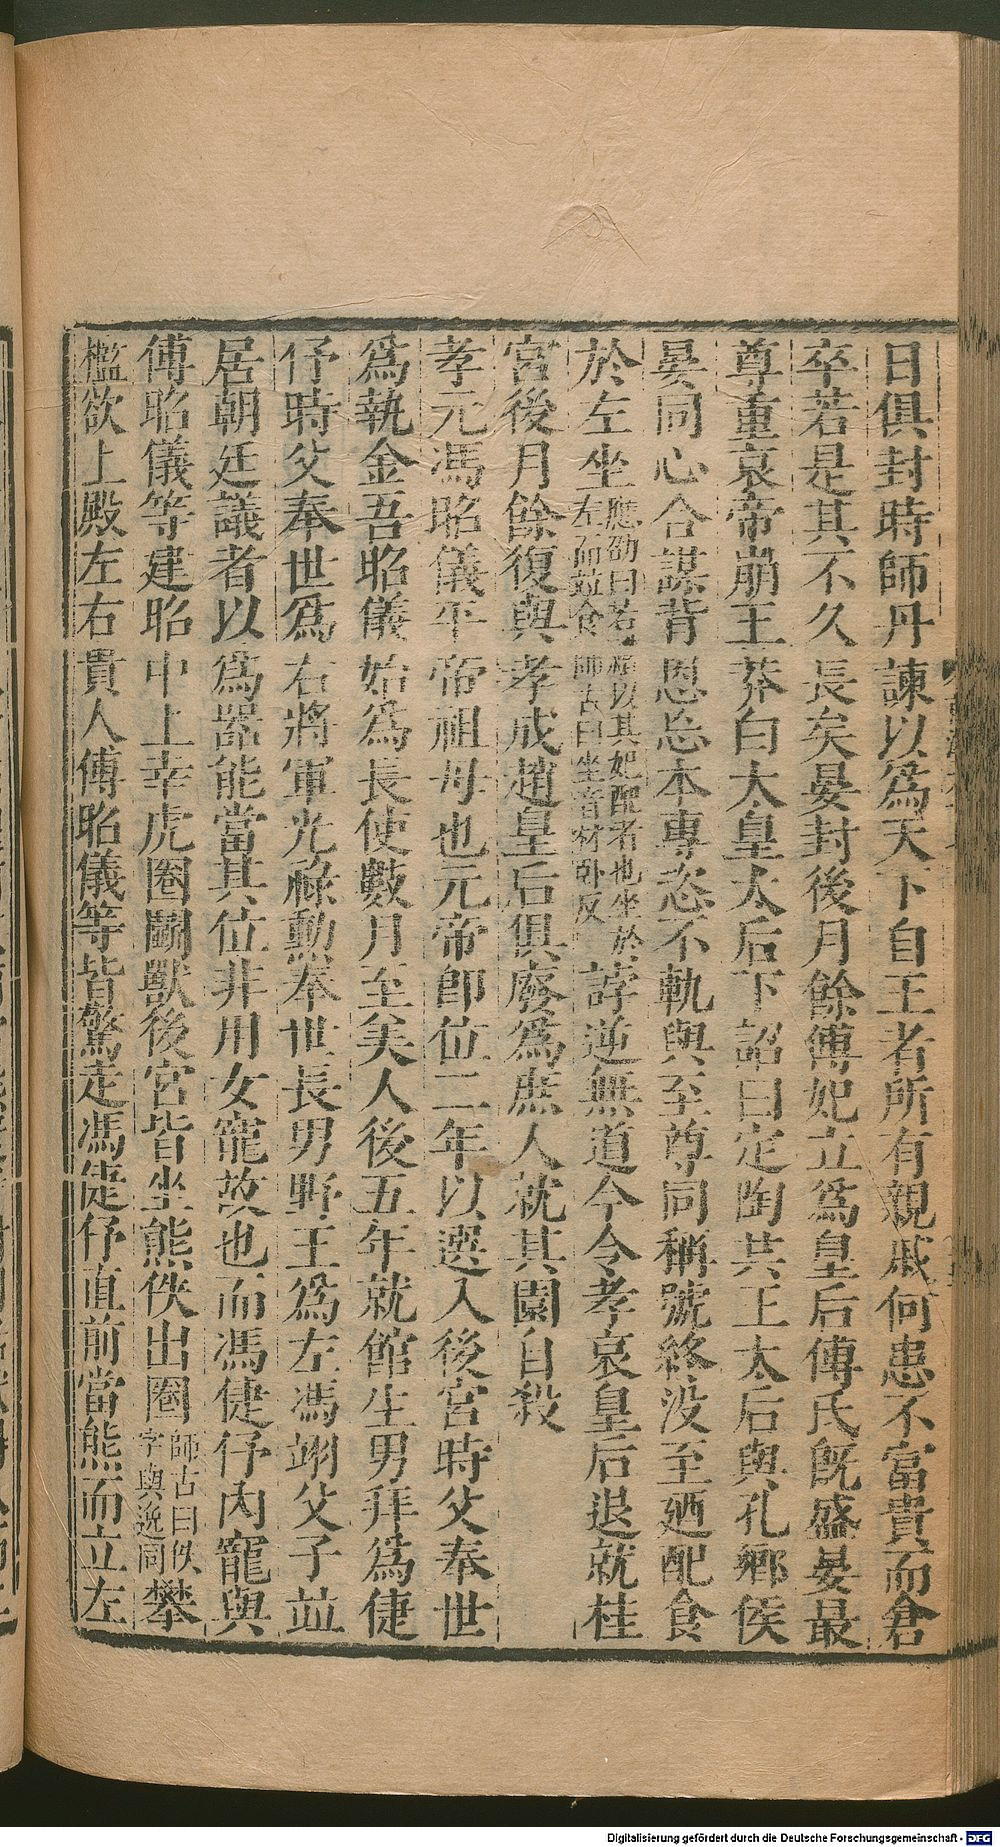 日俱封時師丹諫以爲天下自王者所有親戚何患不富貴而倉
卒若是其不久長矣晏封後月餘傅妃立爲皇后傅氏旣盛晏最
尊重哀帝崩王莽白太皇太后下詔曰定陶共王太后與孔鄉侯
晏同心合謀背恩忘本專恣不軌與至尊同稱號終没至廼配食
於左坐應劭曰若禮以其妃配者也坐於左而並食師古曰坐音材卧反誖逆無道今令孝哀皇后退就桂
宮後月餘復與孝成趙皇后俱廢爲庶人就其園自殺
孝元馮昭儀平帝祖母也元帝卽位二年以選入後宮時父奉世
爲執金吾昭儀始爲長使數月至美人後五年就館生男拜爲倢
伃時父奉世爲右將軍光祿勳奉世長男野王爲左馮翊父子並
居朝廷議者以爲器能當其位非用女寵故也而馮倢伃内寵與
傅昭儀等建昭中上幸虎圈鬭獸後宮皆坐熊佚出圈師古曰佚字與逸同攀
檻欲上殿左右貴人傅昭儀等皆驚走馮倢伃直前當熊而立左
Digitalisierung gefördert durch die Deutsche Forschungsgemeinschaft - DFG